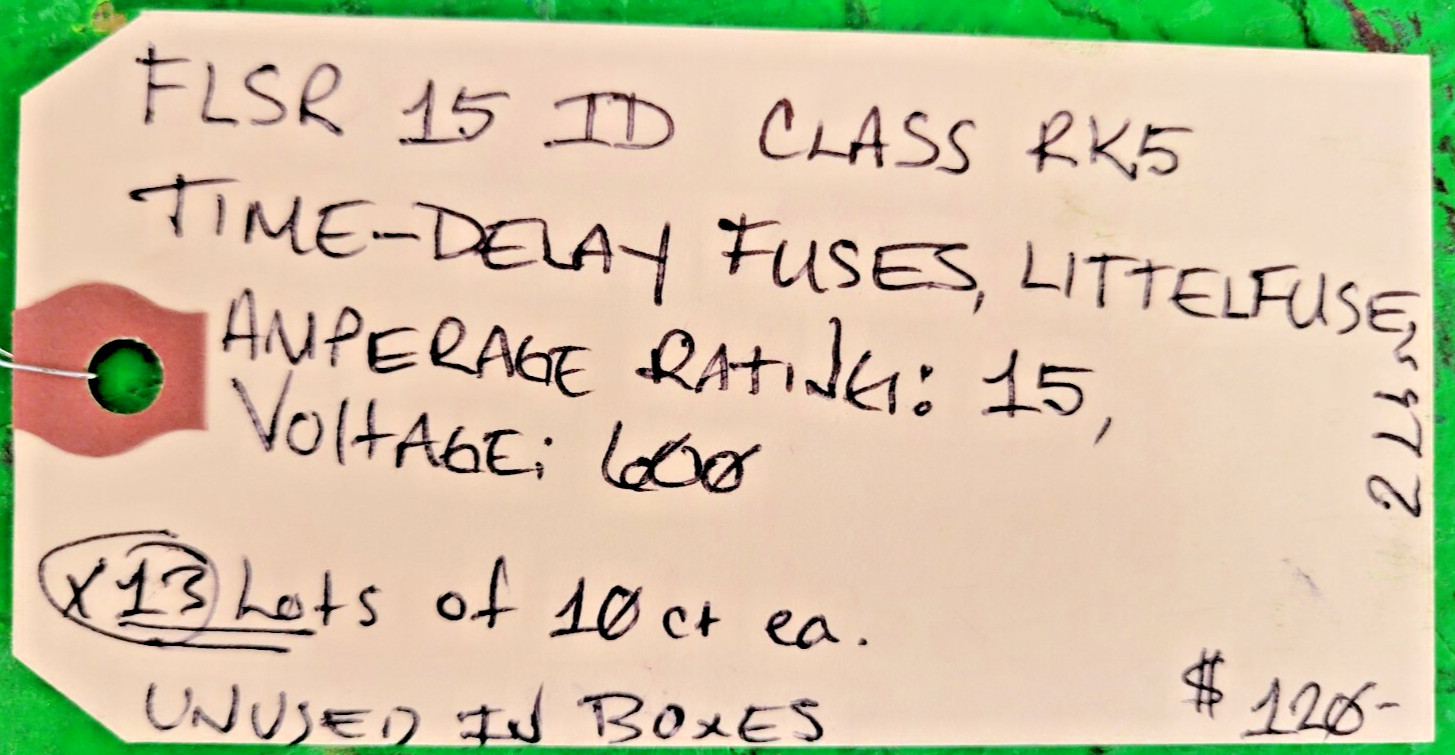 FLSR 15 ID CLASS RK5
TIME-DELAY FUSES, LITTELFUSE,
AMPERAGE RATING: 15,
VOLTAGE: 600
X13 Lots of 10 ct ea.
UNUSED IN BOXES
$ 120-
2 Lbs